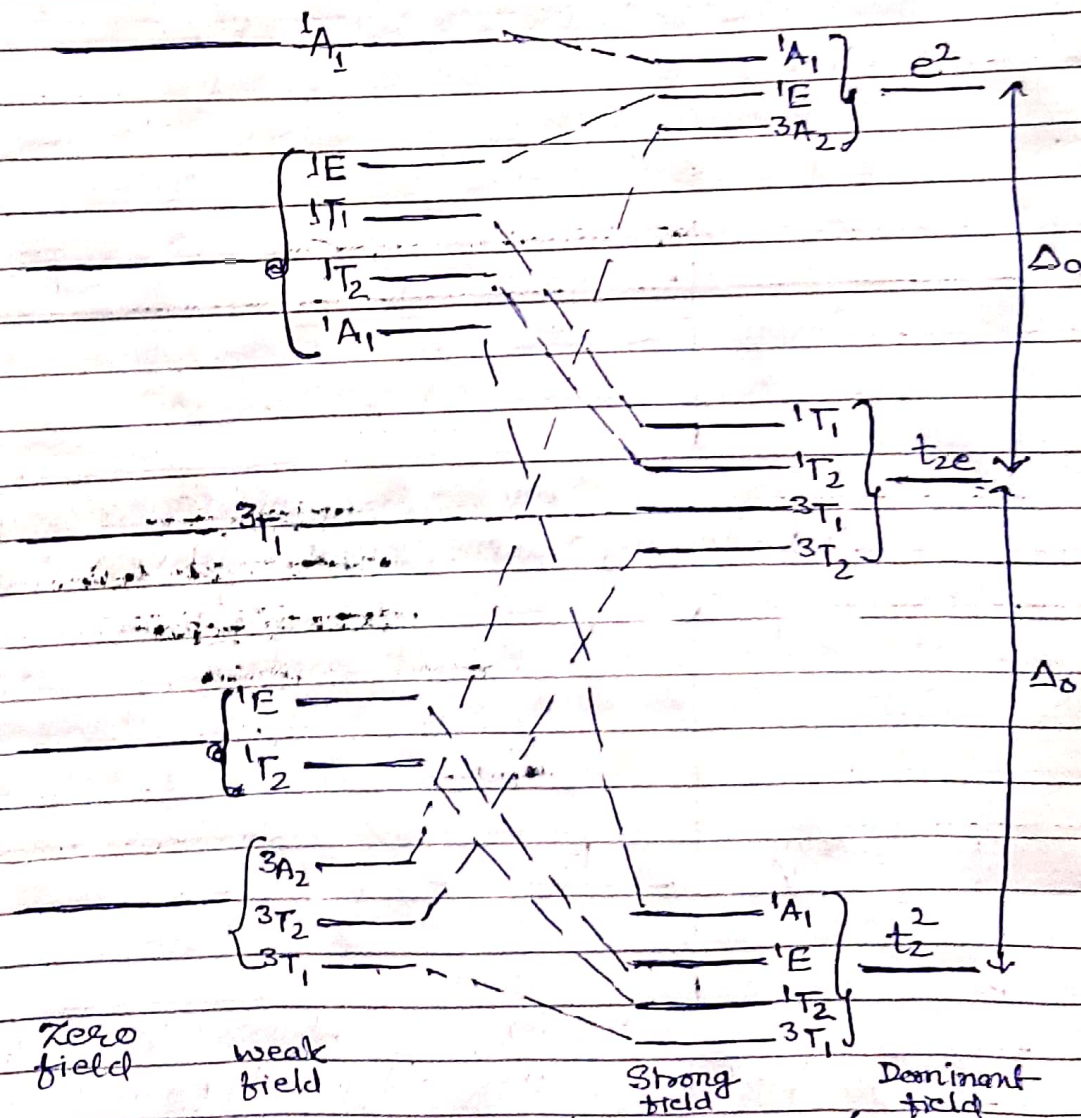 ¹A₁
¹A₁
¹E
³A₂
e²
¹E
¹T₁
¹T₂
¹A₁
Δ₀
¹T₁
¹T₂
³T₁
³T₂
t₂e
³T₁
Δ₀
¹E
¹T₂
³A₂
³T₂
³T₁
¹A₁
¹E
¹T₂
³T₁
t₂²
Zero
field
weak
field
Strong
field
Dominant
field